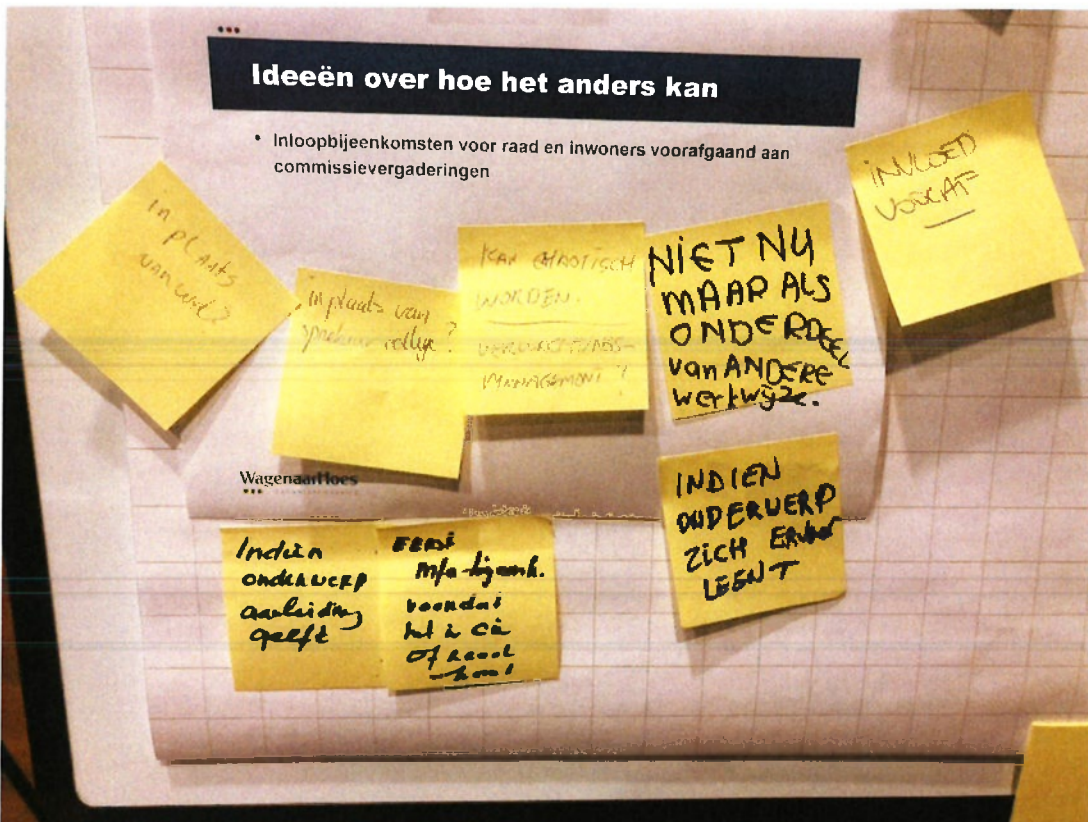 Ideeën over hoe het anders kan
• Inloopbijeenkomsten voor raad en inwoners voorafgaand aan
commissievergaderingen
in plaats
van
in plaats van
?
KAN CHAOTISCH
WORDEN.
VERWACHTINGS-
MANAGEMENT?
NIET NU
MAAR ALS
ONDERDEEL
van ANDERE
werkwijze.
INVLOED
VOORAF
WagenaarHoes
Indien
onderwerp
aanleiding
geeft
EERST
voordat
of raad
INDIEN
ONDERWERP
ZICH ERVOOR
LEENT